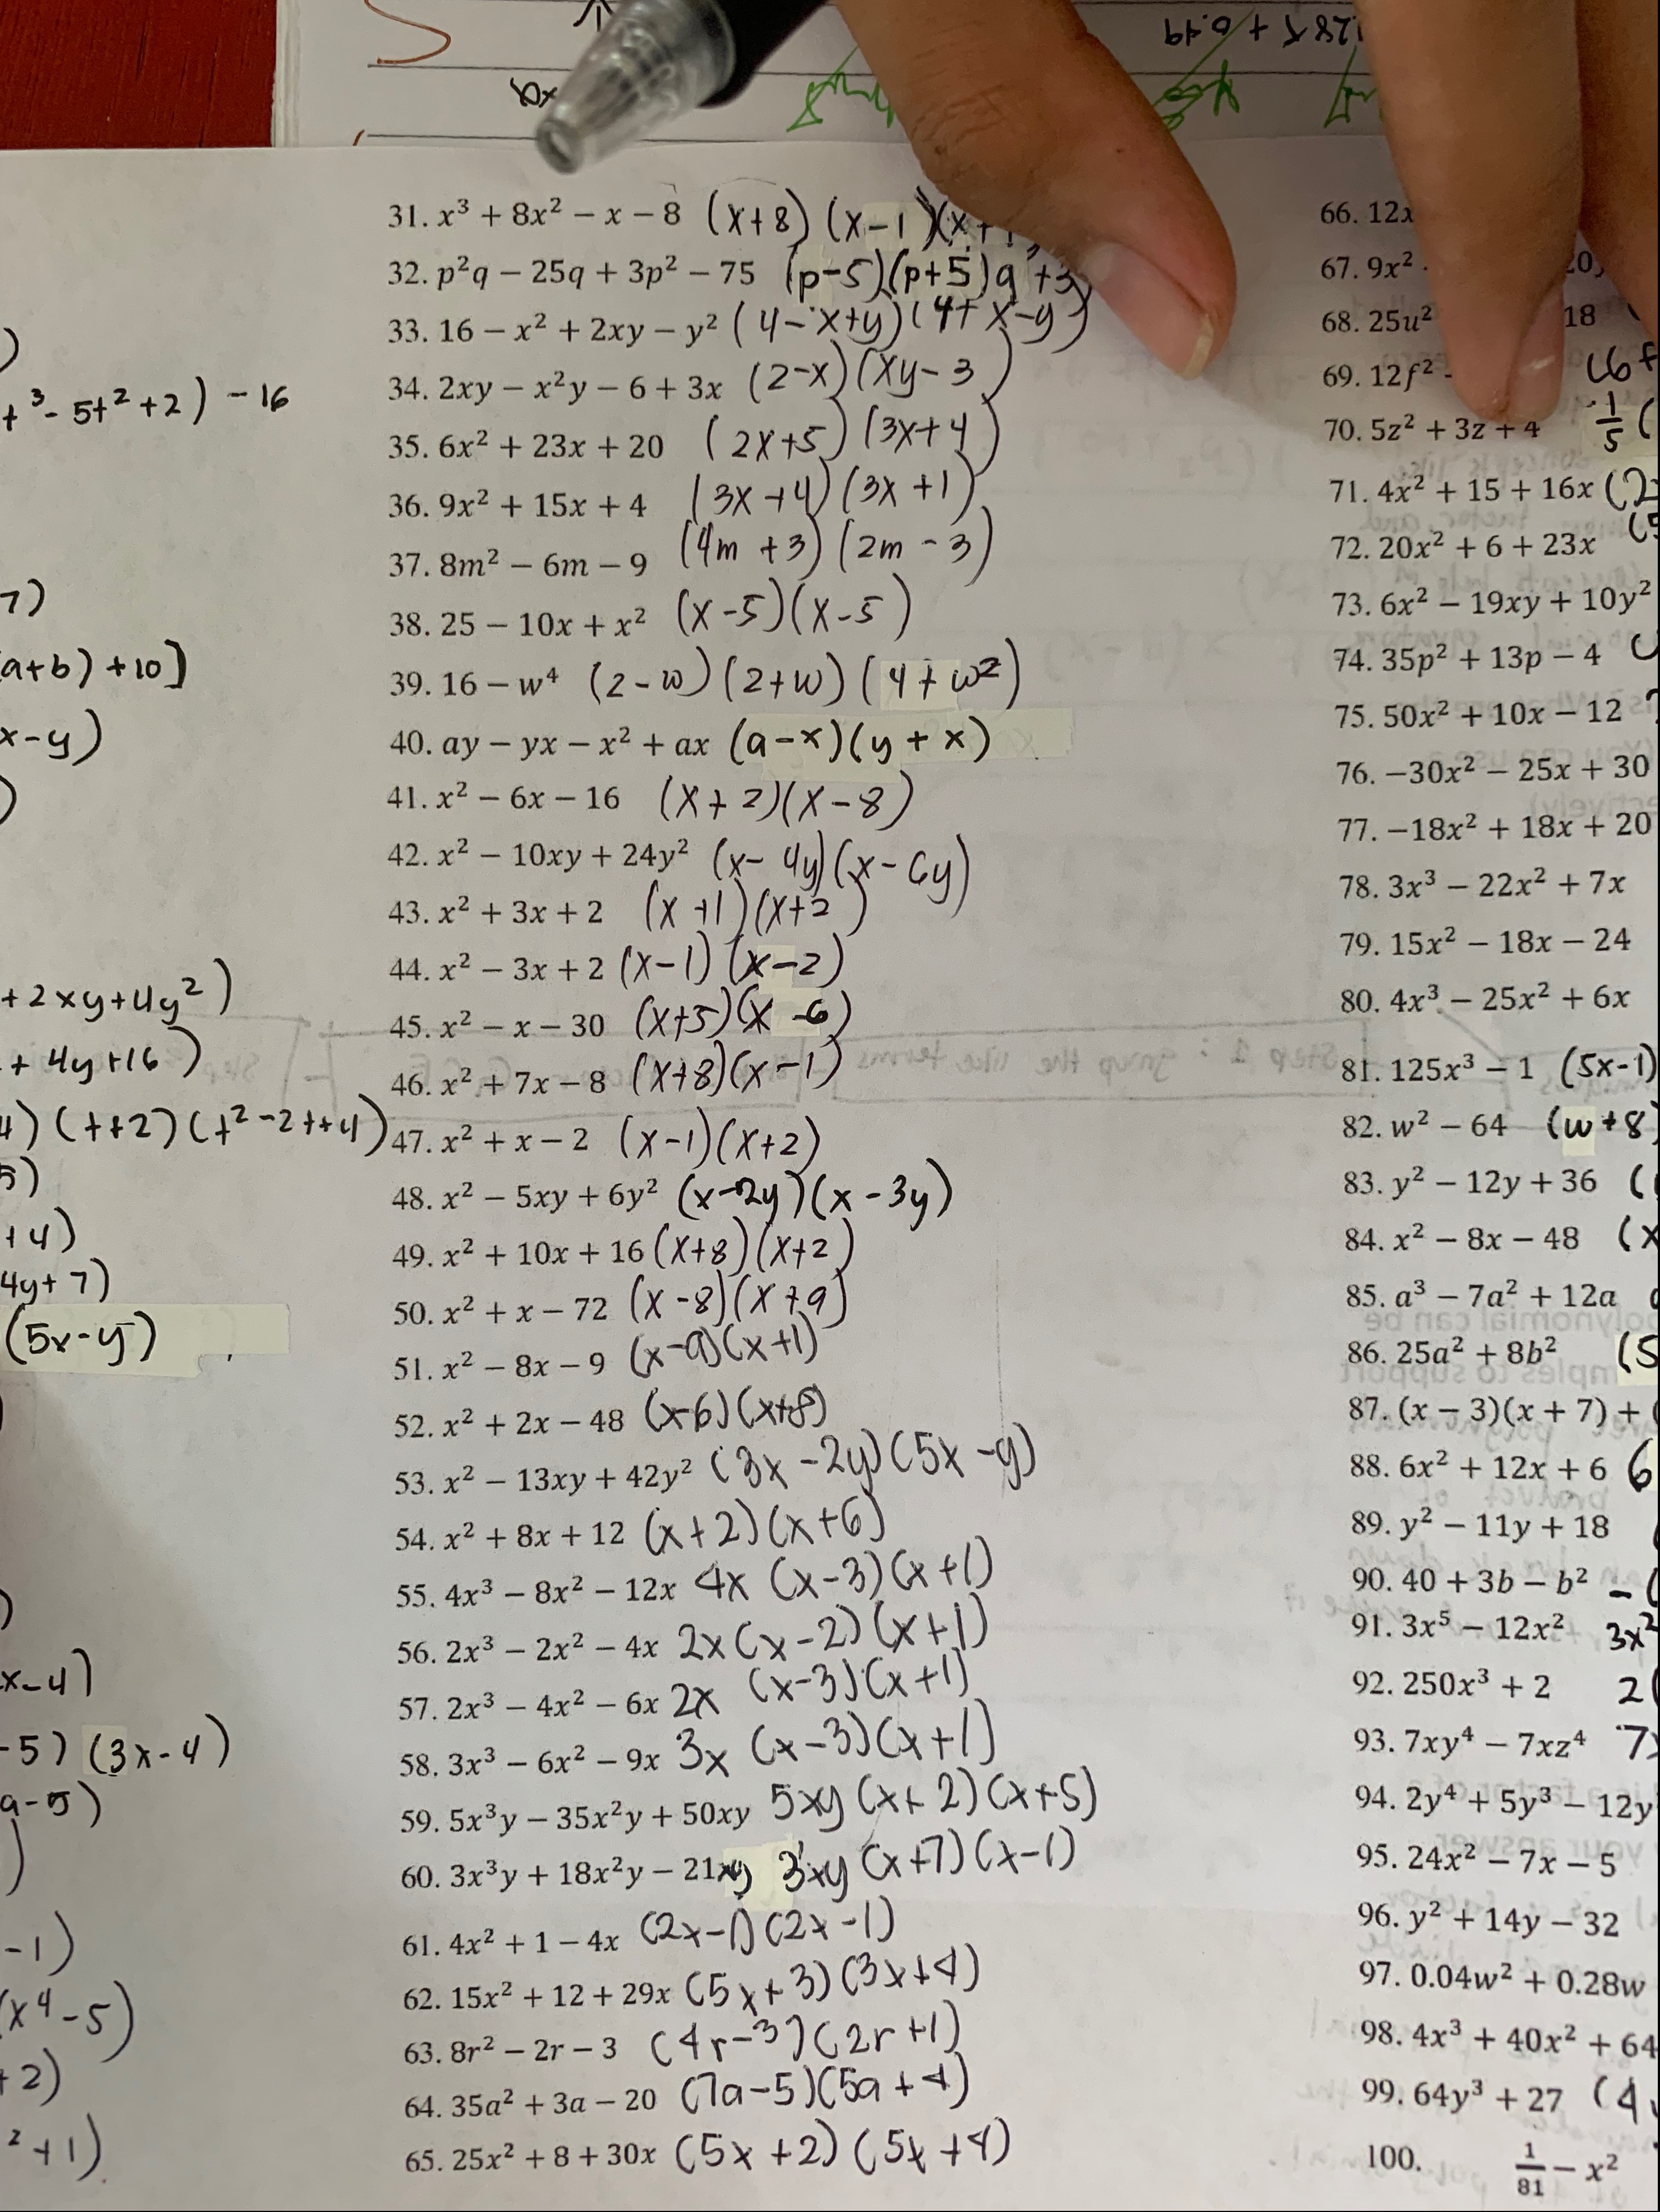 .28x + 0.49
t³ - 5t² + 2) - 16
7)
(a+b) + 10]
x-y)
+ 2xy + 4y²)
+ 4y + 16)
4) (t+2) (t² - 2t + 4)
5)
+ 4)
4y + 7)
(5x - y)
x - 4)
- 5) (3x - 4)
a - 5)
- 1)
(x⁴ - 5)
+ 2)
² + 1)
31. x³ + 8x² − x − 8 (x+8) (x-1)(x+1
32. p²q − 25q + 3p² − 75 (p-5)(p+5)q+3
33. 16 − x² + 2xy − y² (4-x+y)(4+x-y)
34. 2xy − x²y − 6 + 3x (2-x)(xy-3)
35. 6x² + 23x + 20 (2x+5)(3x+4)
36. 9x² + 15x + 4 (3x+4)(3x+1)
37. 8m² − 6m − 9 (4m+3)(2m-3)
38. 25 − 10x + x² (x-5)(x-5)
39. 16 − w⁴ (2-w)(2+w)(4+w²)
40. ay − yx − x² + ax (a-x)(y+x)
41. x² − 6x − 16 (x+2)(x-8)
42. x² − 10xy + 24y² (x-4y)(x-6y)
43. x² + 3x + 2 (x+1)(x+2)
44. x² − 3x + 2 (x-1)(x-2)
45. x² − x − 30 (x+5)(x-6)
46. x² + 7x − 8 (x+8)(x-1)
47. x² + x − 2 (x-1)(x+2)
48. x² − 5xy + 6y² (x-2y)(x-3y)
49. x² + 10x + 16 (x+8)(x+2)
50. x² + x − 72 (x-8)(x+9)
51. x² − 8x − 9 (x-9)(x+1)
52. x² + 2x − 48 (x-6)(x+8)
53. x² − 13xy + 42y² (3x-2y)(5x-y)
54. x² + 8x + 12 (x+2)(x+6)
55. 4x³ − 8x² − 12x 4x (x-3)(x+1)
56. 2x³ − 2x² − 4x 2x(x-2)(x+1)
57. 2x³ − 4x² − 6x 2x (x-3)(x+1)
58. 3x³ − 6x² − 9x 3x (x-3)(x+1)
59. 5x³y − 35x²y + 50xy 5xy(x+2)(x+5)
60. 3x³y + 18x²y − 21xy 3xy(x+7)(x-1)
61. 4x² + 1 − 4x (2x-1)(2x-1)
62. 15x² + 12 + 29x (5x+3)(3x+4)
63. 8r² − 2r − 3 (4r-3)(2r+1)
64. 35a² + 3a − 20 (7a-5)(5a+4)
65. 25x² + 8 + 30x (5x+2)(5x+4)
66. 12x
67. 9x²
68. 25u² 18
69. 12f² - (6+
70. 5z² + 3z + 4 1/5 (
71. 4x² + 15 + 16x (2
72. 20x² + 6 + 23x (5
73. 6x² − 19xy + 10y²
74. 35p² + 13p − 4
75. 50x² + 10x − 12
76. −30x² − 25x + 30
77. −18x² + 18x + 20
78. 3x³ − 22x² + 7x
79. 15x² − 18x − 24
80. 4x³ − 25x² + 6x
81. 125x³ − 1 (5x-1)
82. w² − 64 (w+8)
83. y² − 12y + 36 (
84. x² − 8x − 48 (x
85. a³ − 7a² + 12a
86. 25a² + 8b² (5
87. (x − 3)(x + 7) + (
88. 6x² + 12x + 6 6
89. y² − 11y + 18
90. 40 + 3b − b² -(
91. 3x⁵ − 12x² 3x²
92. 250x³ + 2 2(
93. 7xy⁴ − 7xz⁴ 7x
94. 2y⁴ + 5y³ − 12y
95. 24x² − 7x − 5
96. y² + 14y − 32
97. 0.04w² + 0.28w
98. 4x³ + 40x² + 64
99. 64y³ + 27 (4
100. 1/81 − x²